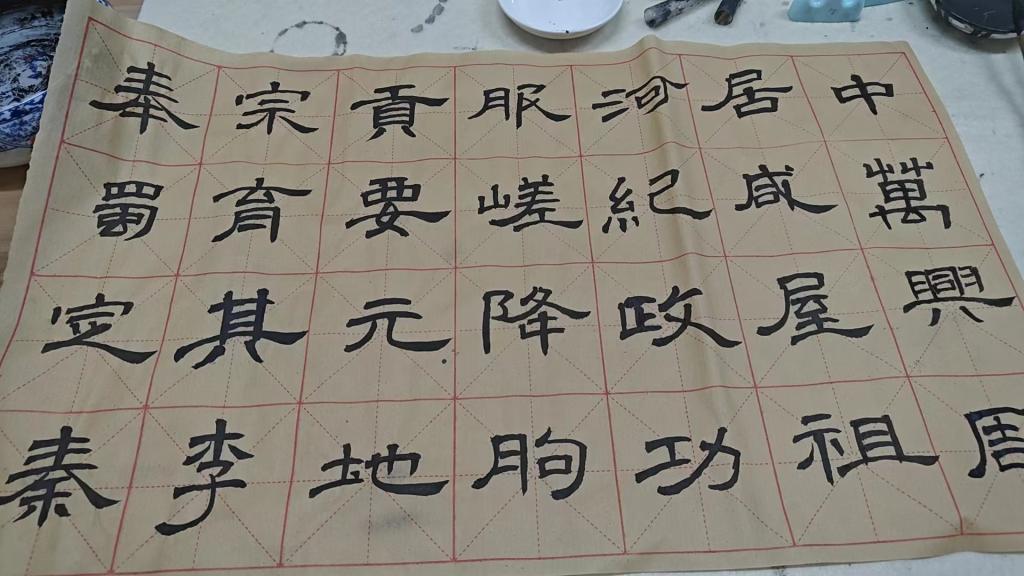 中萬興周
居咸屋祖
河紀政功
服嵯降朐
貢要元地
宗育其李
奉蜀定秦